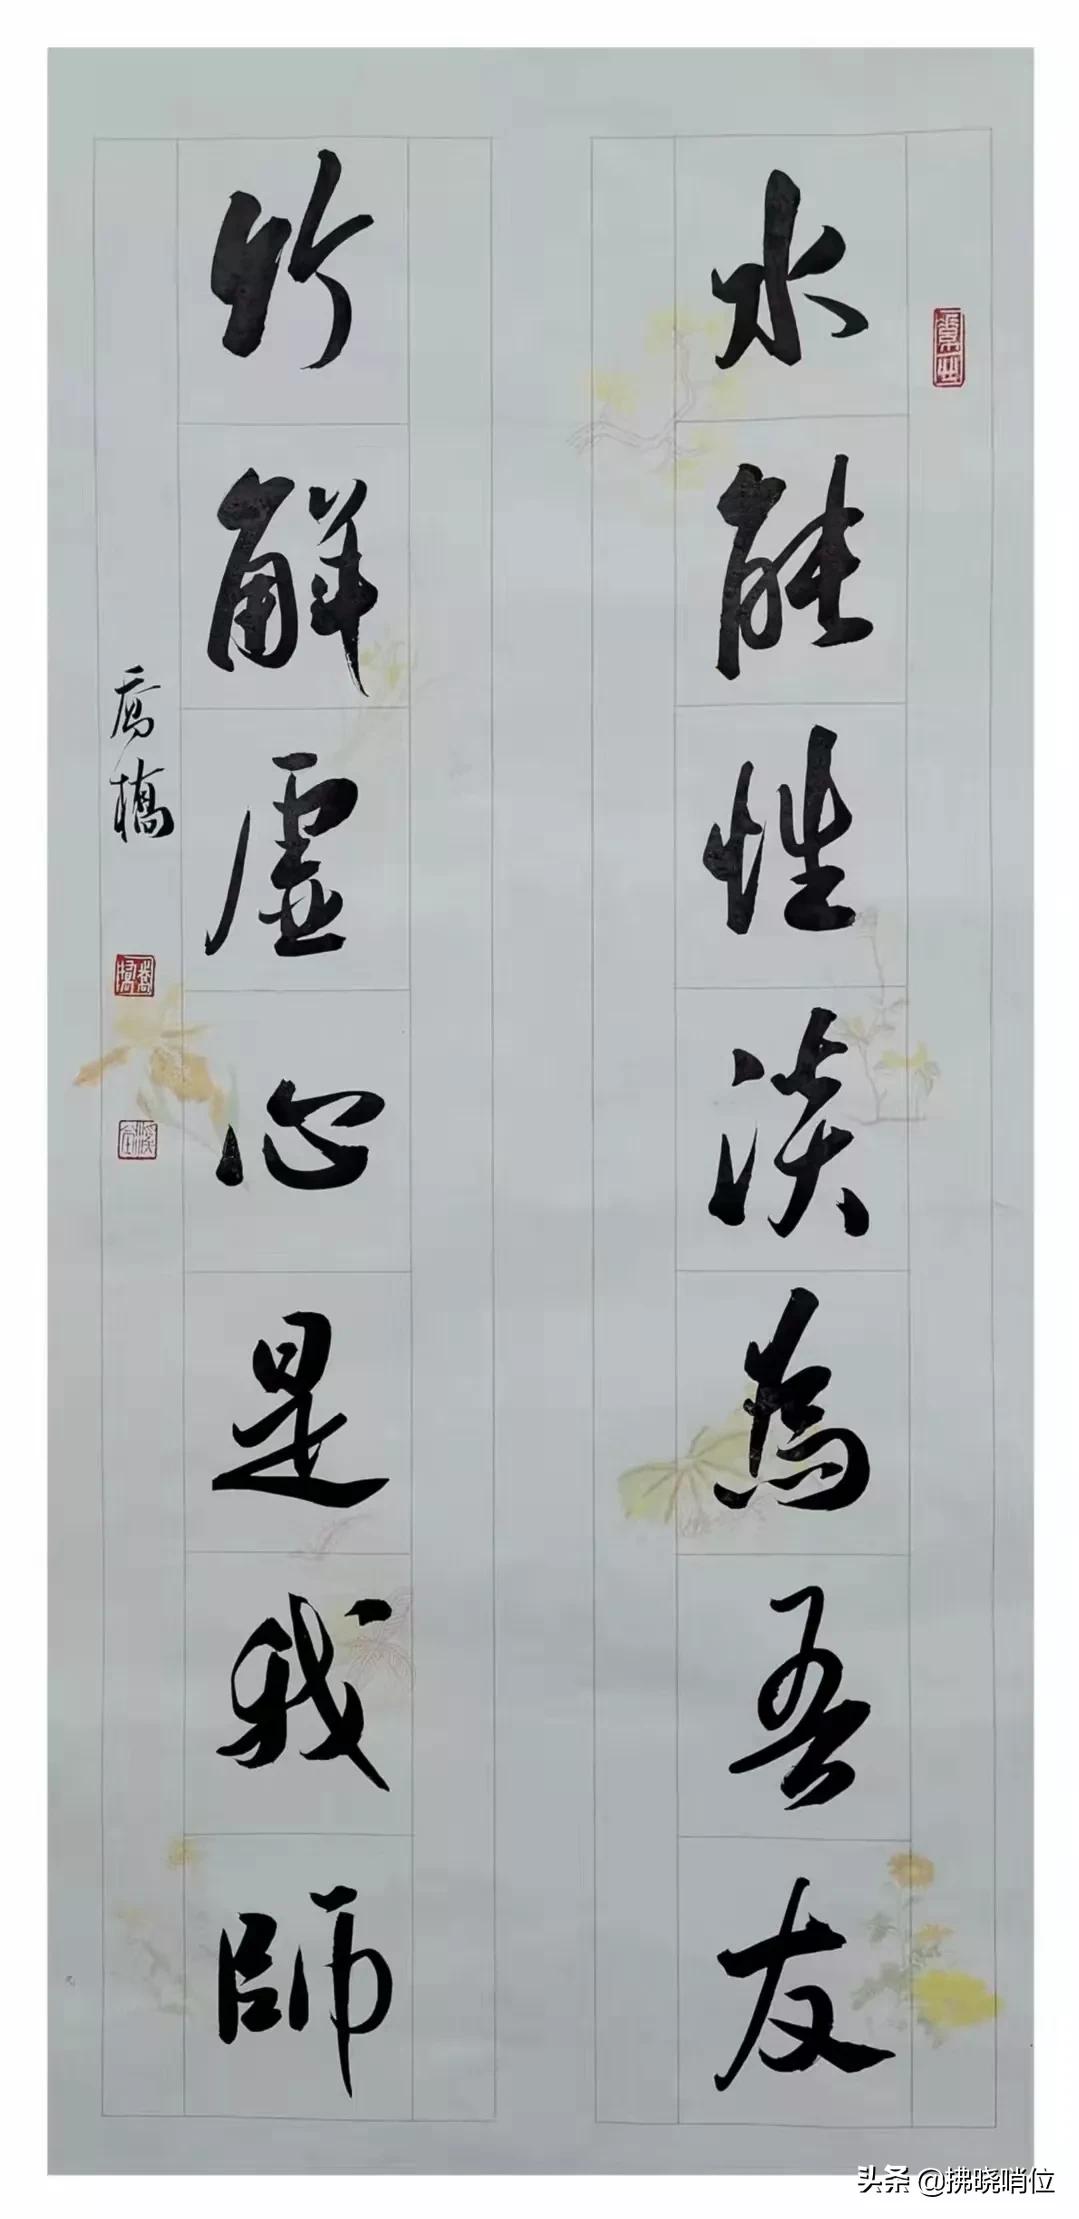 水能性淡為吾友
竹解虛心是我師
喬橋
头条 @拂晓哨位